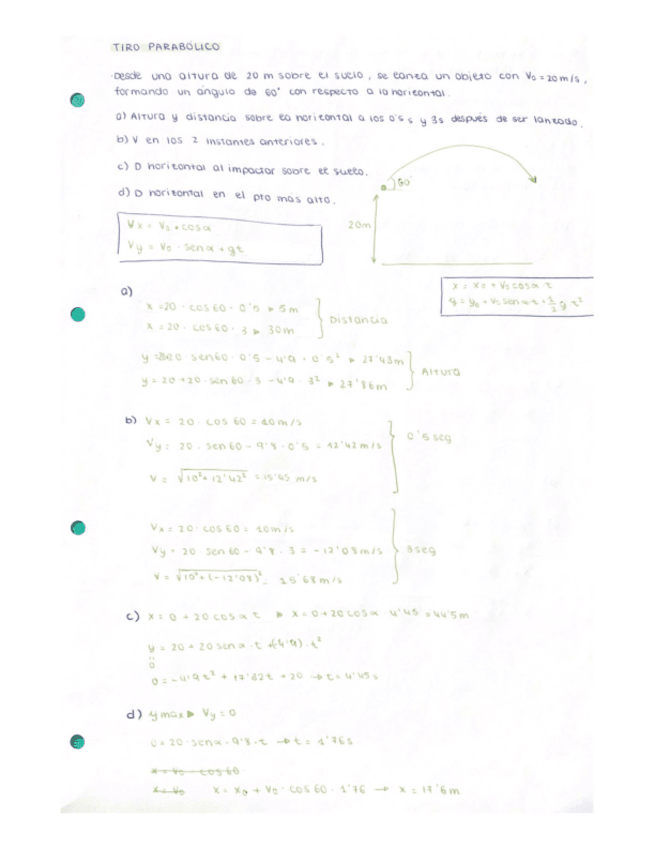 TIRO PARABÓLICO
Desde una altura de 20 m sobre el suelo, se lanza un objeto con V₀ = 20 m/s,
formando un ángulo de 60° con respecto a la horizontal.
a) Altura y distancia sobre la horizontal a los 0'5 s y 3s después de ser lanzado.
b) V en los 2 instantes anteriores.
c) D horizontal al impactar sobre el suelo.
d) D horizontal en el pto mas alto.
60°
20m
Vx = V₀ · cos α
Vy = V₀ · sen α + gt
x = x₀ + V₀ cos α · t
y = y₀ + V₀ sen α · t + 1/2 g · t²
a)
x = 20 · cos 60 · 0'5 ► 5m
x = 20 · cos 60 · 3 ► 30m
Distancia
sen 60 · 0'5 - 4'9 · 0'5² ► 27'43m
y = 20 + 20 · sen 60 · 3 - 4'9 · 3² ► 27'86m
Altura
b) Vx = 20 · cos 60 = 10 m/s
Vy = 20 · sen 60 - 9'8 · 0'5 = 12'42 m/s
V = √10² + 12'42² = 15'95 m/s
0'5 seg
Vx = 20 · cos 60 = 10m/s
Vy = 20 · sen 60 - 9'8 · 3 = -12'08 m/s
V = √10² + (-12'08)² = 15'68 m/s
3seg
c) x = 0 + 20 cos α t ► x = 0 + 20 cos α · 4'45 = 44'5m
y = 20 + 20 sen α · t +(-4'9) · t²
0
0 = -4'9 t² + 17'32 t + 20 → t = 4'45 s
d) y max ► Vy = 0
0 = 20 · sen α - 9'8 · t → t = 1'76s
x = V₀ · cos 60
x = V₀ x = x₀ + V₀ · cos 60 · 1'76 → x = 17'6m